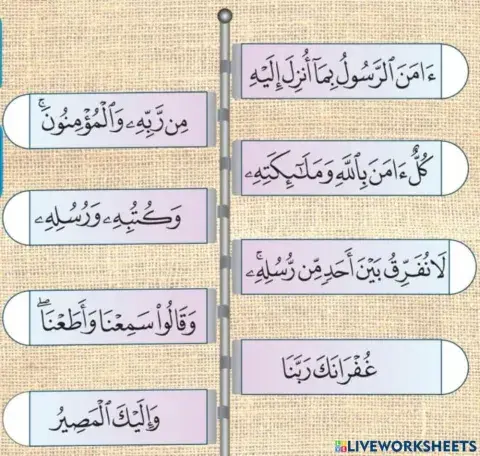 ءَامَنَ ٱلرَّسُولُ بِمَآ أُنزِلَ إِلَيْهِ
مِن رَّبِّهِۦ وَٱلْمُؤْمِنُونَ ۚ
كُلٌّ ءَامَنَ بِٱللَّهِ وَمَلَـٰٓئِكَتِهِۦ
وَكُتُبِهِۦ وَرُسُلِهِۦ
لَا نُفَرِّقُ بَيْنَ أَحَدٍ مِّن رُّسُلِهِۦ ۚ
وَقَالُوا۟ سَمِعْنَا وَأَطَعْنَا ۖ
غُفْرَانَكَ رَبَّنَا
وَإِلَيْكَ ٱلْمَصِيرُ
LIVEWORKSHEETS